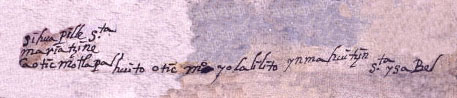 sihuapile s.ta
mariatzine
aotic motlapal huito otic mo yolalilito yn mahuitzin s.ta ysaBel